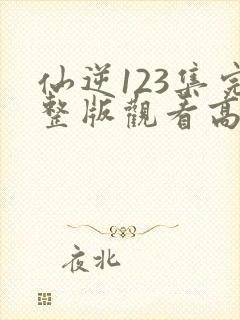 仙逆123集完
整版觀看高
夜北